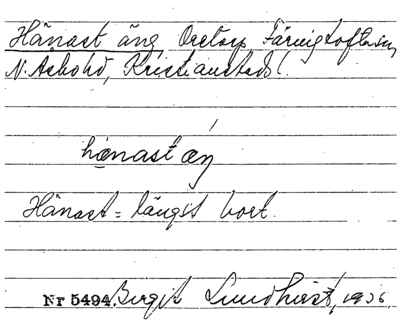 Hänast äng, Oretorp Färingtofta sn,
N. Åsbohd, Kristianstads l.
hænast æŋ
Hänast = längst bort.
Nr 5494. Birgit Lundhvist, 1936.